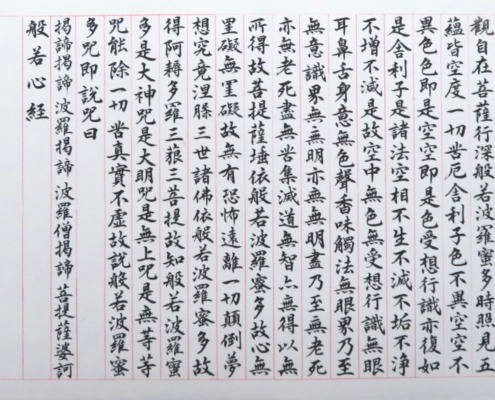 觀自在菩薩行深般若波羅蜜多時照見五
蘊皆空度一切苦厄舍利子色不異空空不
異色色即是空空即是色受想行識亦復如
是舍利子是諸法空相不生不滅不垢不淨
不增不減是故空中無色無受想行識無眼
耳鼻舌身意無色聲香味觸法無眼界乃至
無意識界無無明亦無無明盡乃至無老死
亦無老死盡無苦集滅道無智亦無得以無
所得故菩提薩埵依般若波羅蜜多故心無
罣礙無罣礙故無有恐怖遠離一切顛倒夢
想究竟涅槃三世諸佛依般若波羅蜜多故
得阿耨多羅三藐三菩提故知般若波羅蜜
多是大神咒是大明咒是無上咒是無等等
咒能除一切苦真實不虛故說般若波羅蜜
多咒即說咒曰
揭諦揭諦 波羅揭諦 波羅僧揭諦 菩提薩婆訶
般若心經